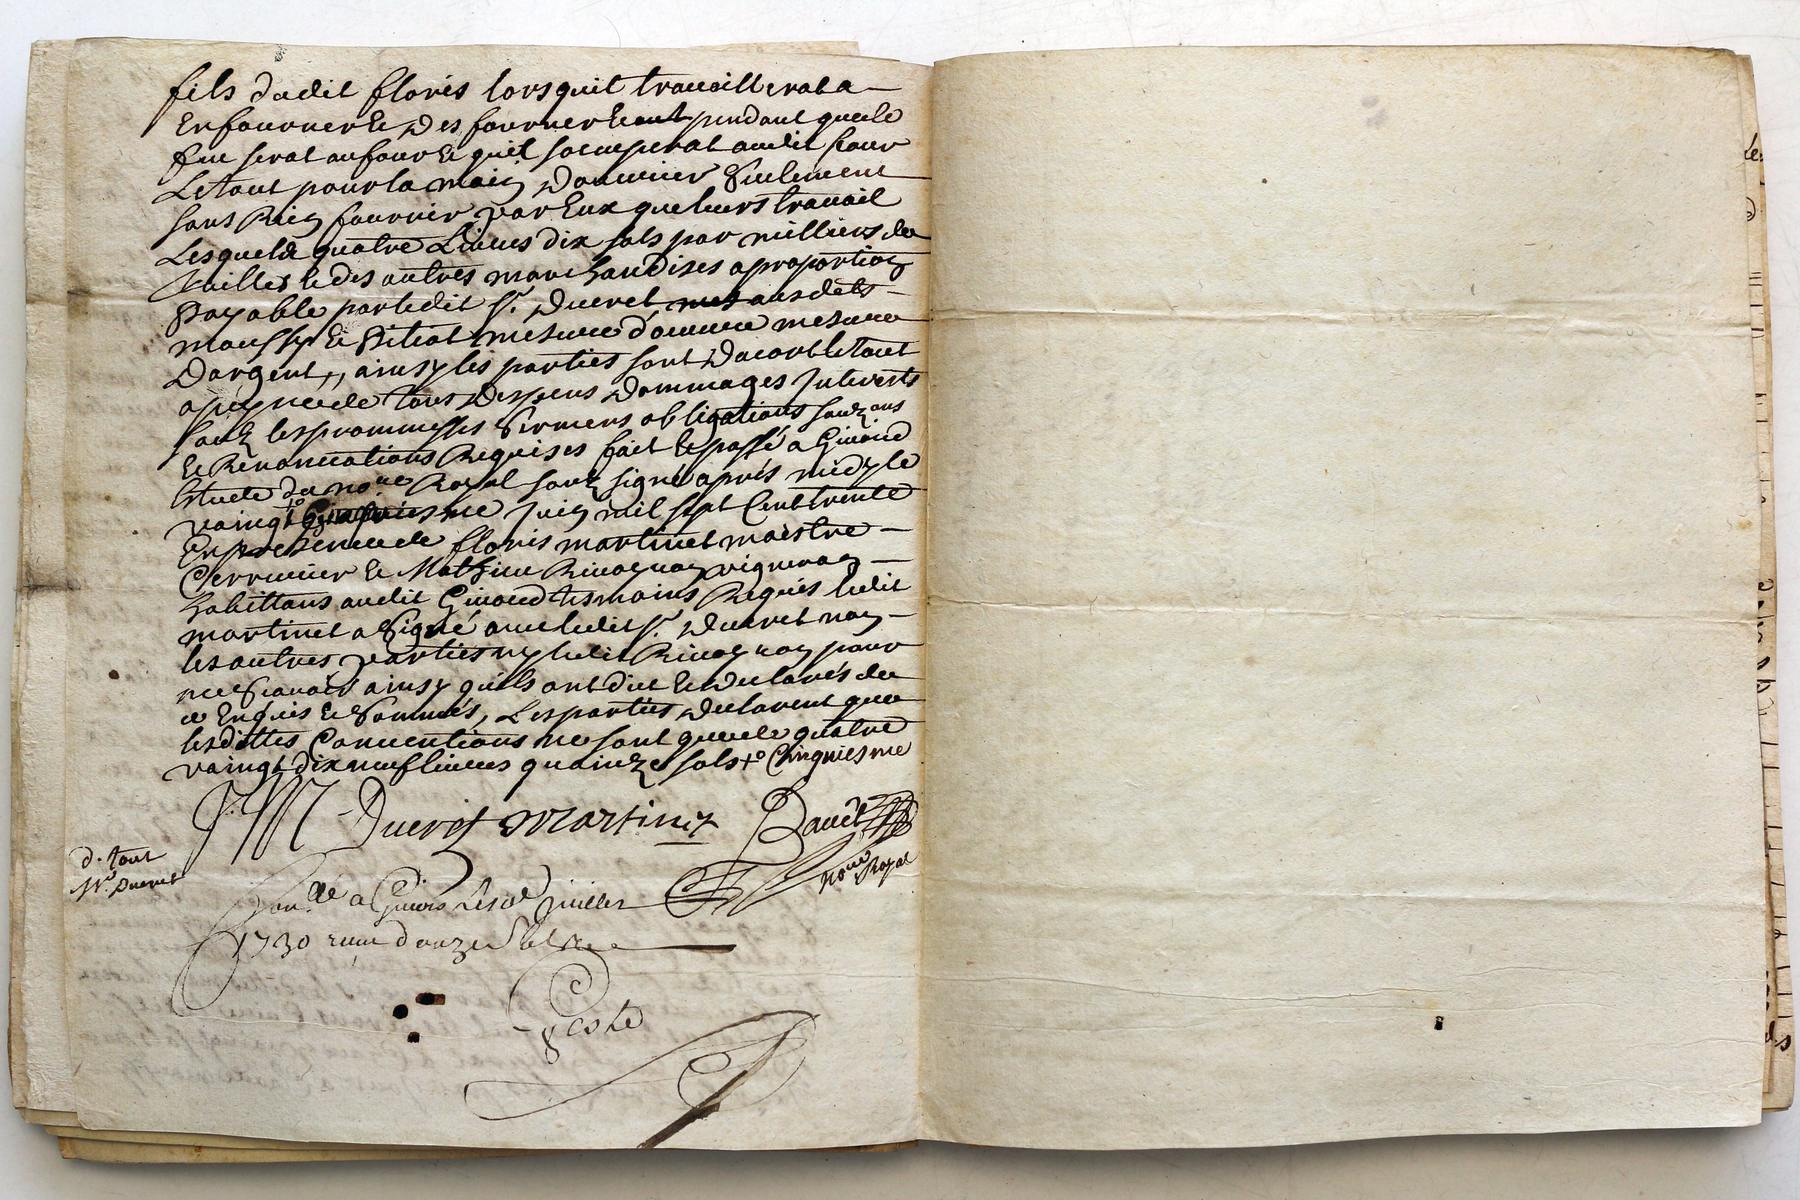 fils dudit floris lors quil travaillerat a
Enfourner & Des fourner & aut pendant que le
feu serat au four & quil socuperat audit four
Le tout pour la main Douvrier Seulement
sans Rien fournir par Eux que leurs travail
Lesquels quatre Livres dix sols par milliers de
tuilles & des autres marchandises a proportion
Payable par ledit Sr. Ducret aus dits
Moussy & Pitiot mesure d'ouvre mesure
D'argent,, ainsy les parties sont D'acort le tout
a peyne de tous Despens Dommages Interests
souz les prommesses Sermens obligations souzons
& Renonciations Requises fait & passé a Givord
Estude du nore Royal souz signé aprés midy le
vaingt juin mil sept Cent trente
En presence de floris martinet maistre
Serrurier & Mathieu vigneron
habittans audit Givord tesmoins Requis ledit
martinet a Signé avec ledit Sr. Ducret non
les autres parties ny ledit pour
ne Scavoir ainsy quils ont dit & Declarés de
ce Enquis & Sommés, Les parties Declarent que
lesdittes Conventions ne sont que de quatre
vaingt dix neuf livres quainze sols +o Cinquiesme
J M Ducret Martinet
nore Royal
d. tout
Mr. Ducret
a Givors Le juillet
1730 recu douze sols